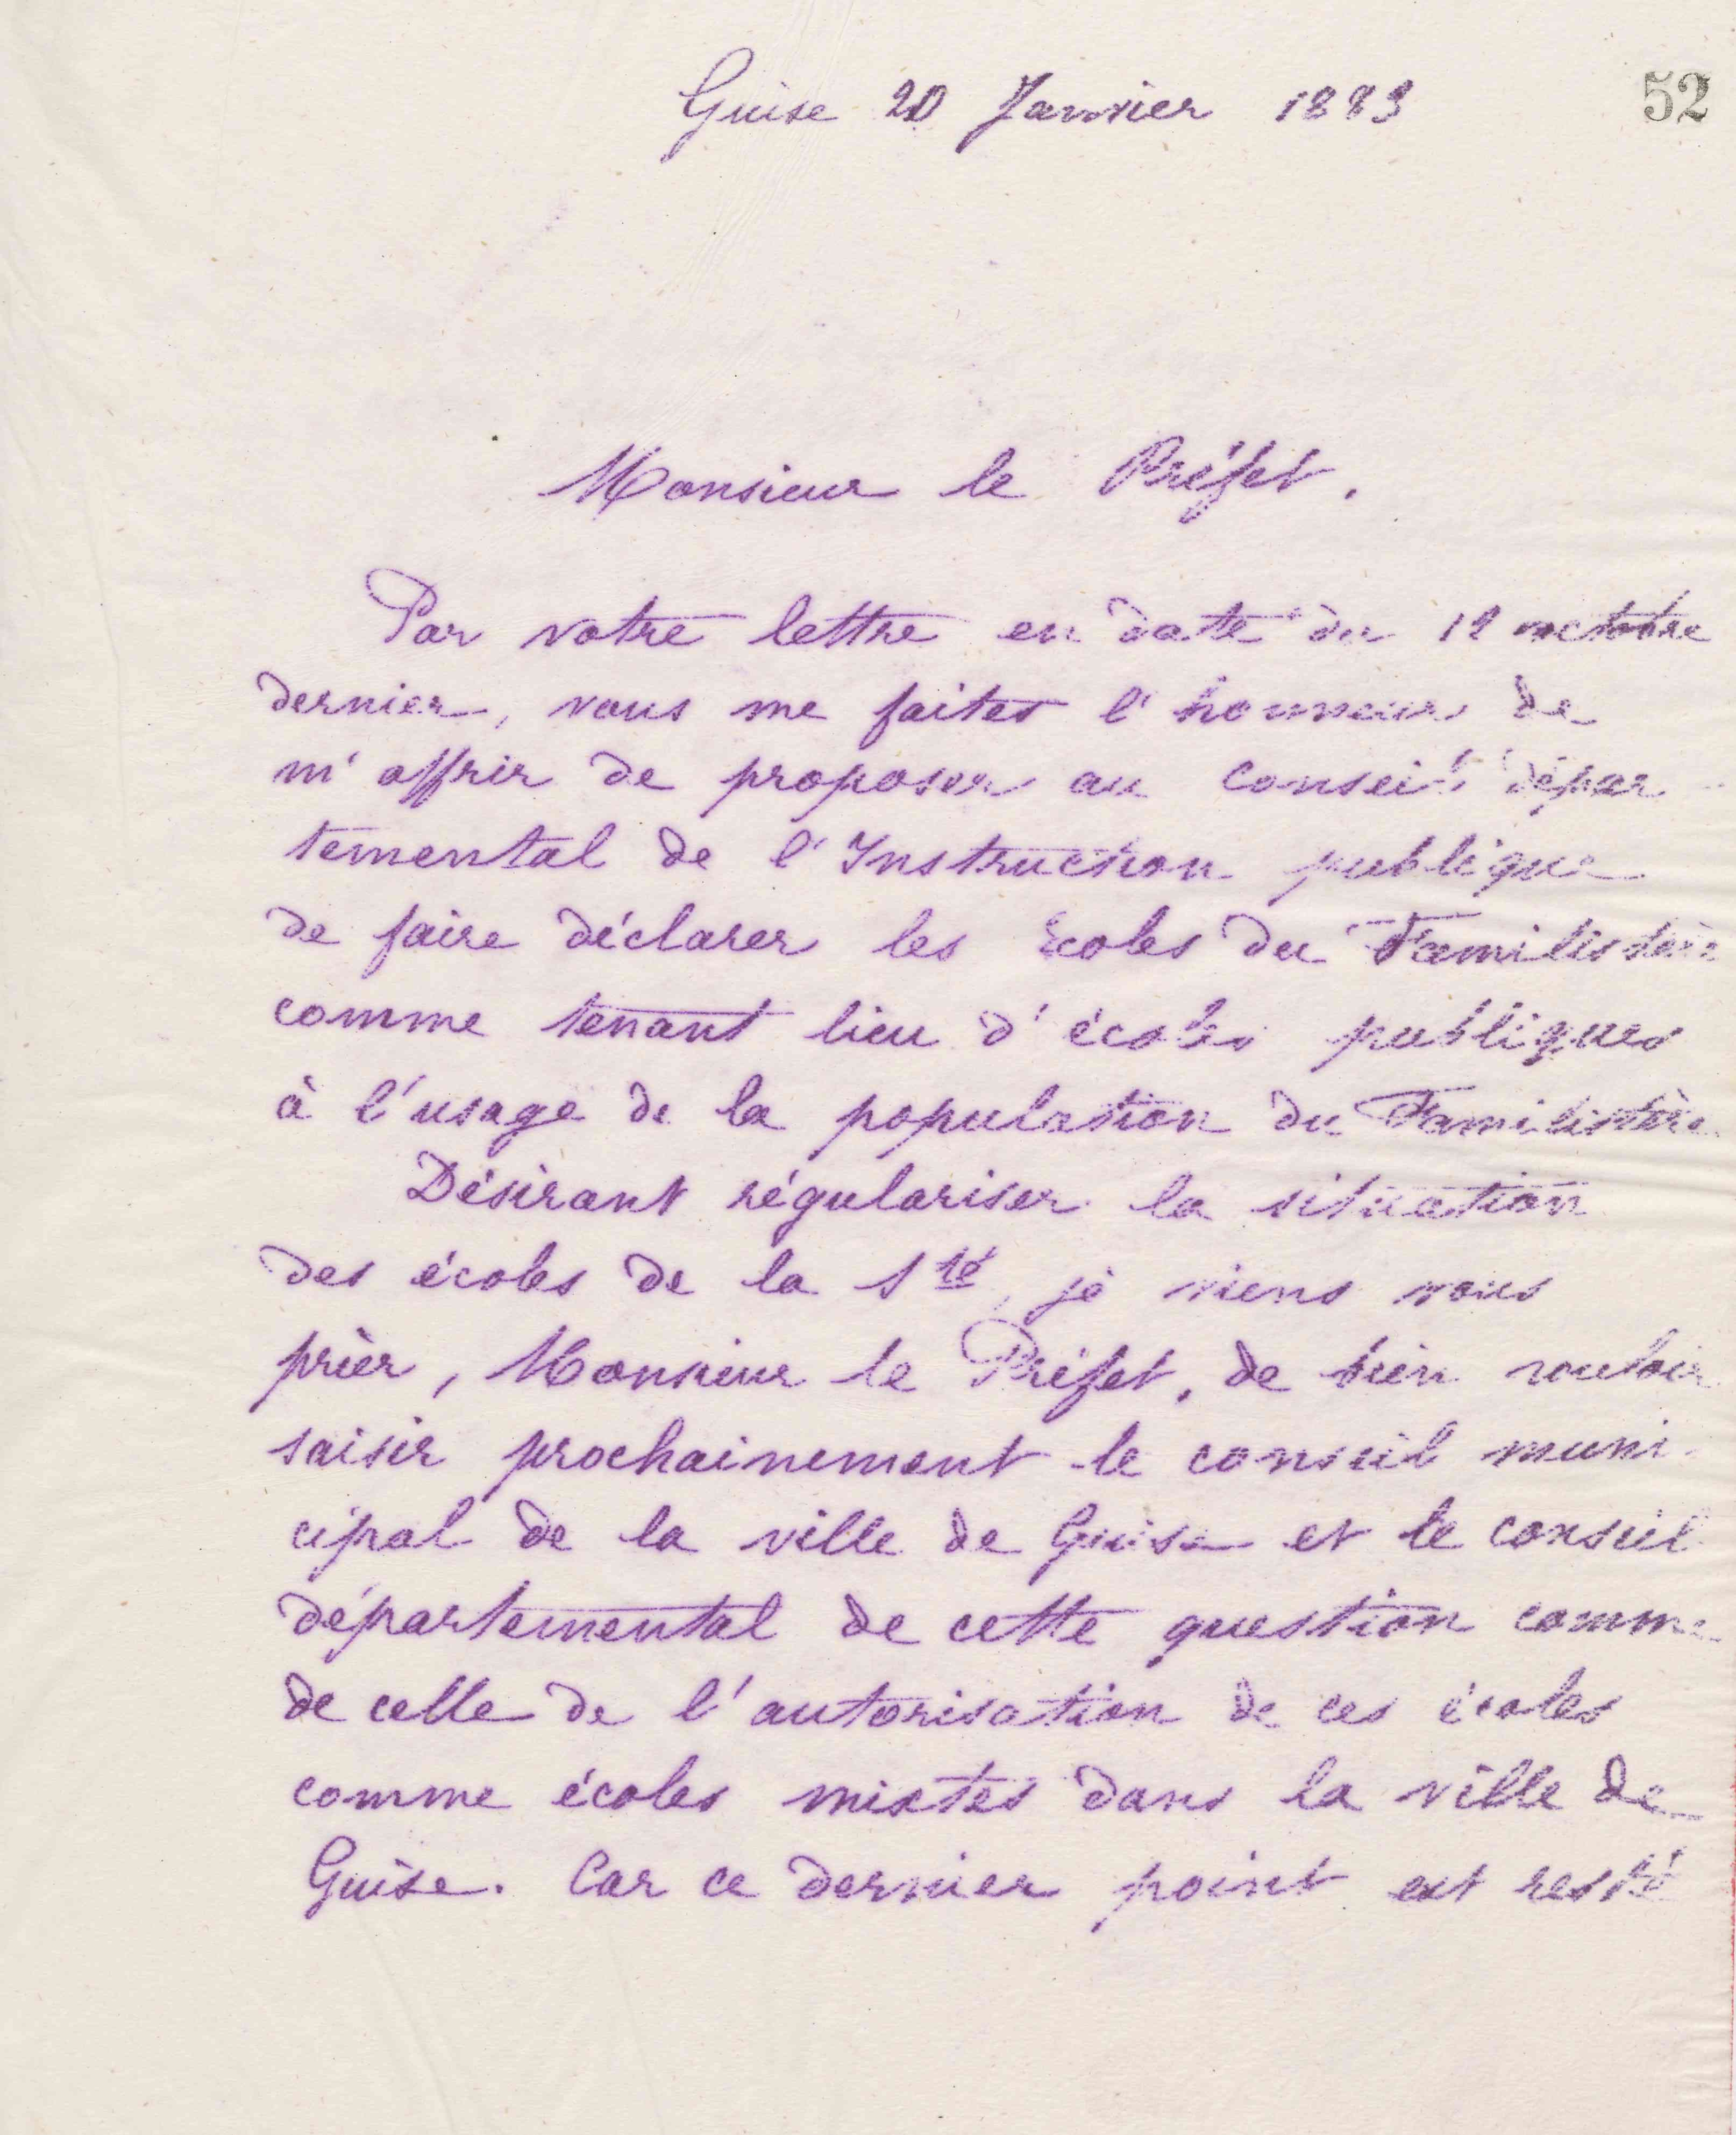 Guise 20 Janvier 1883
52
Monsieur le Préfet.
Par votre lettre en date du 12 octobre
dernier, vous me faites l'honneur de
m'offrir de proposer au Conseil dépar
temental de l'Instruction publique
de faire déclarer les Ecoles du Familistère
comme tenant lieu d'écoles publiques
à l'usage de la population du Familistère
Désirant régulariser la situation
des écoles de la Sté, je viens vous
prier, Monsieur le Préfet, de bien vouloir
saisir prochainement le conseil muni
cipal de la ville de Guise et le conseil
départemental de cette question comme
de celle de l'autorisation de ces écoles
comme écoles mixtes dans la ville de
Guise. Car ce dernier point est resté